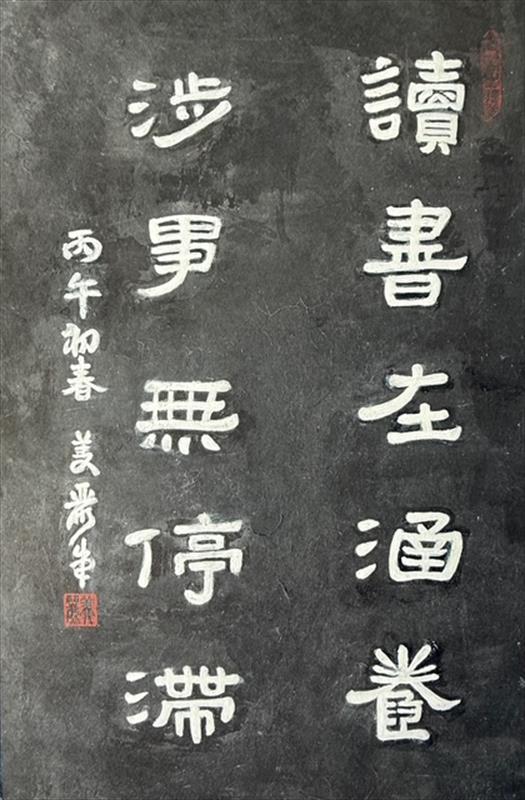 讀書在涵養
涉事無停滯
丙午初春 美齡書